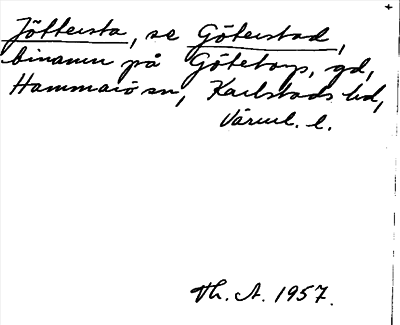 Jöttersta, se Göterstad,
binamn på Götetorp, gd,
Hammarö sn, Karlstads hd,
Värml. l.
Th. A. 1957.